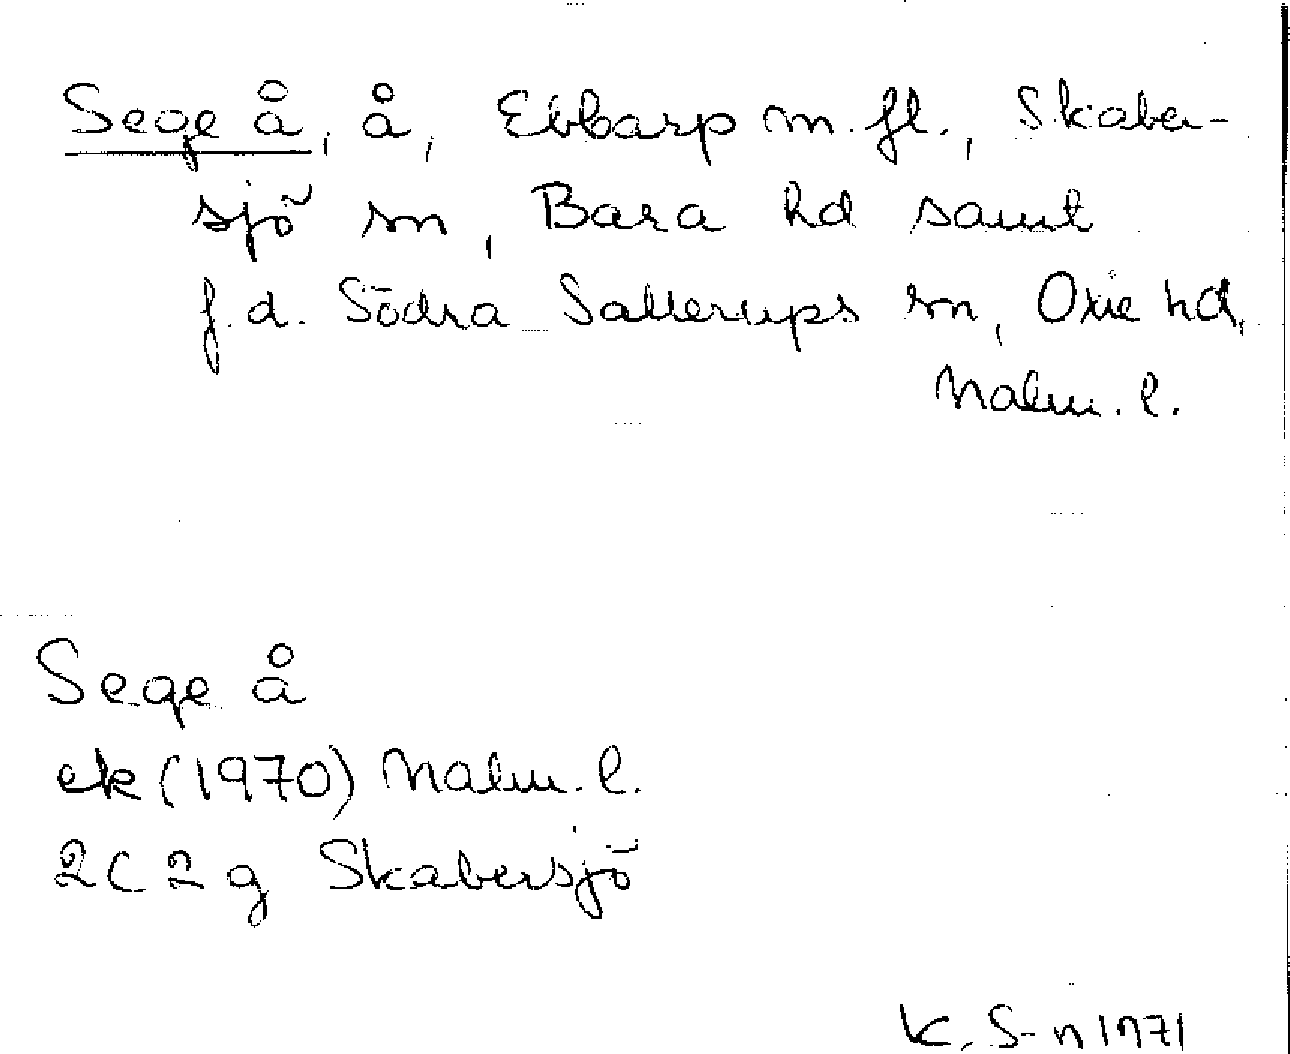 Sege å, å, Ebbarp m.fl., Skaber-
sjö sn, Bara hd samt
f.d. Södra Sallerups sn, Oxie hd,
Malm. l.
Sege å
ek (1970) Malm. l.
2C 2g Skabersjö
K. S-n 1971